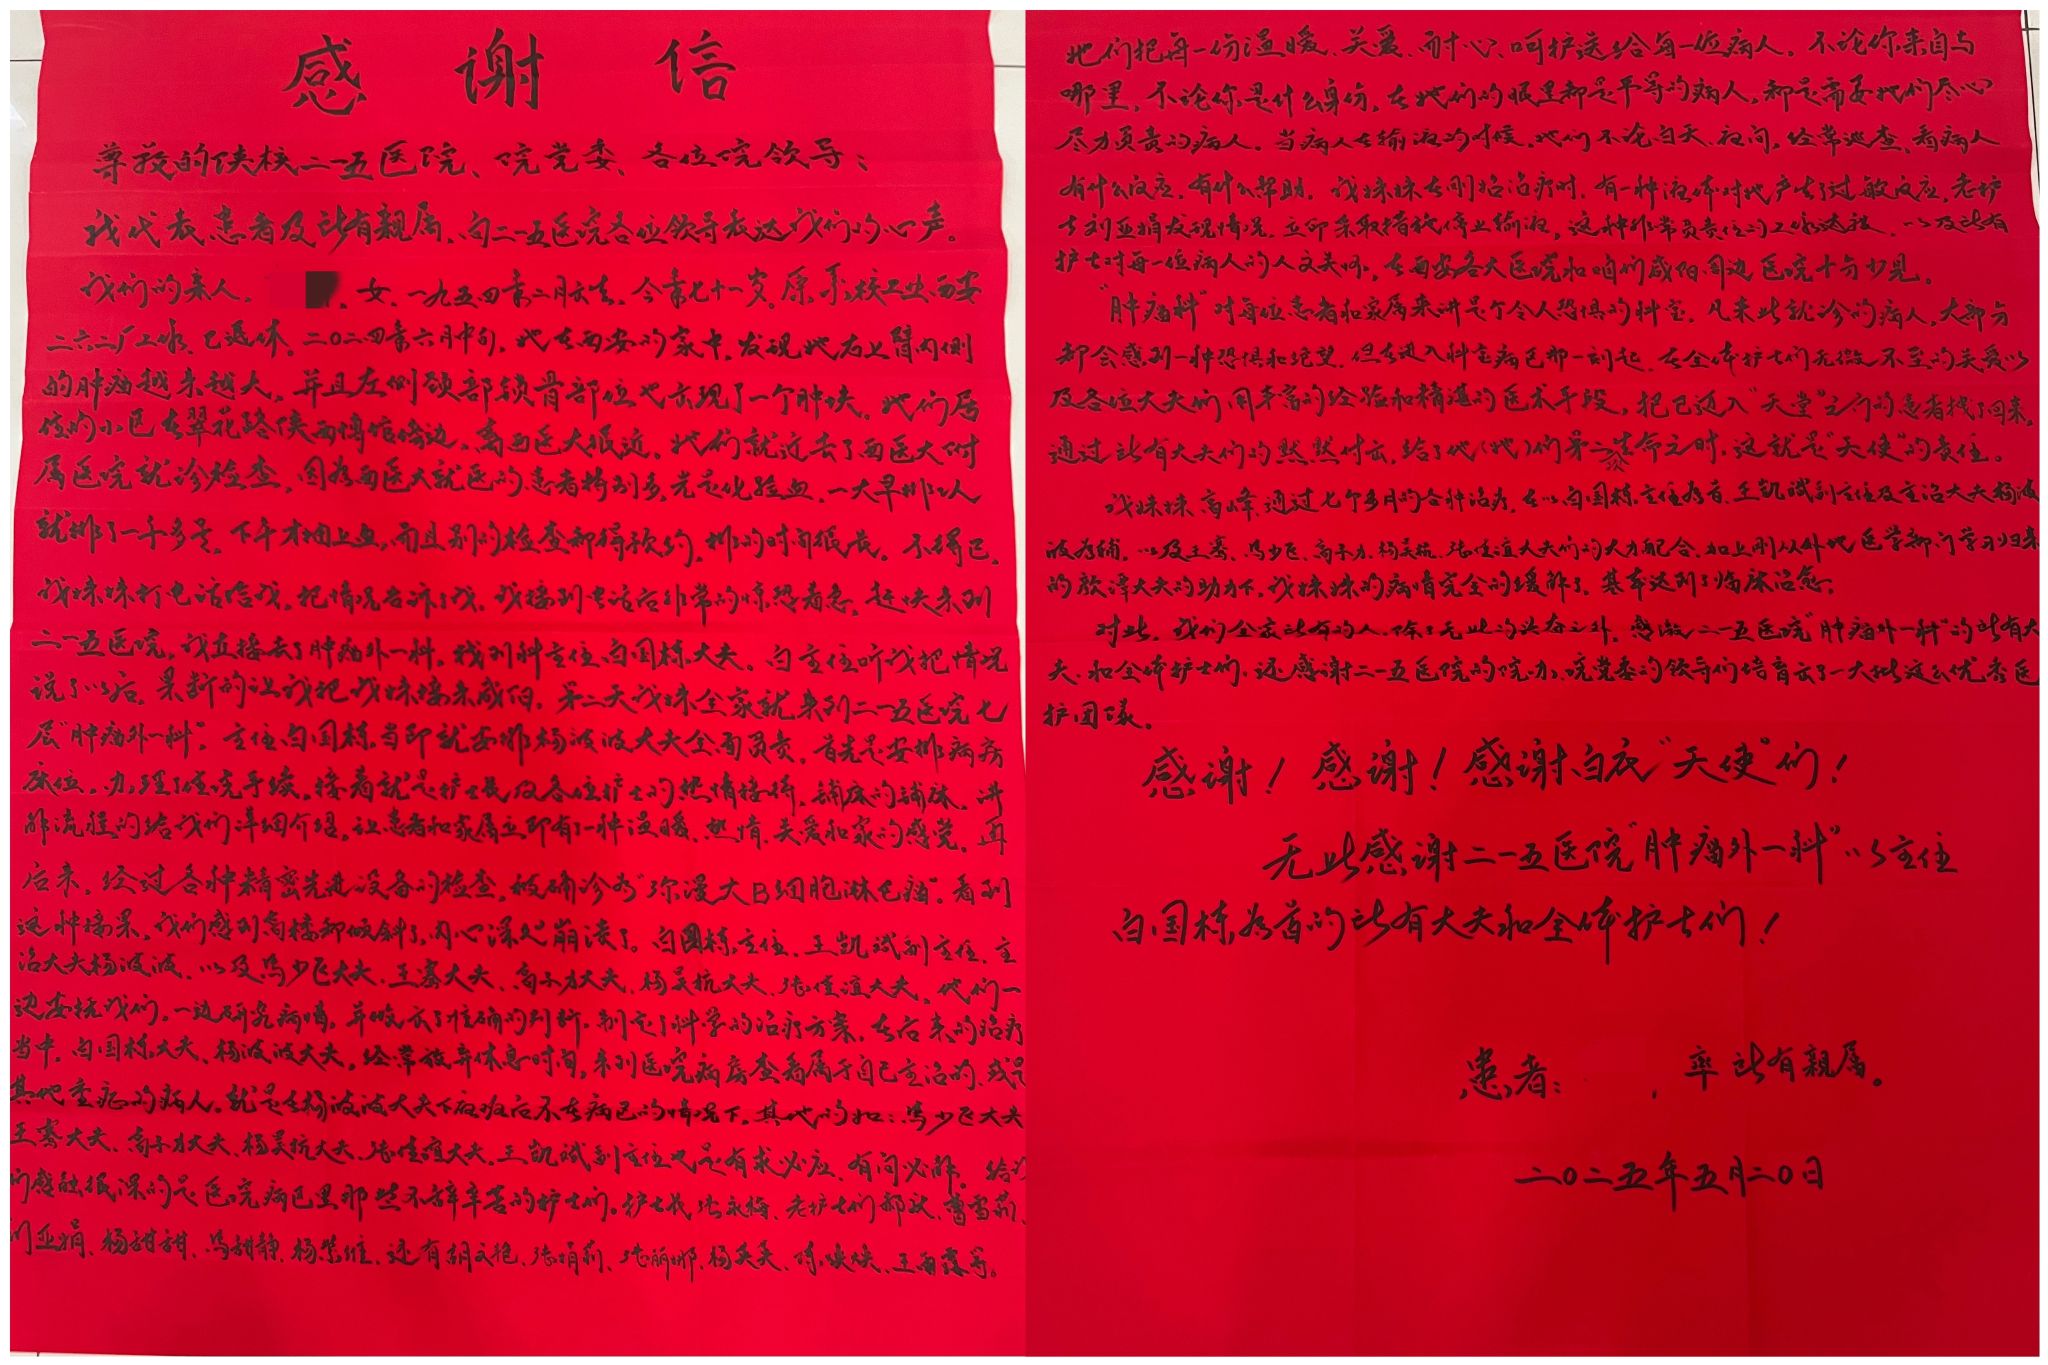 感谢信
尊敬的陕核二一五医院、院党委、各位院领导：
我代表患者及所有親属、向二一五医院各位领导表达我们的心声。
我们的亲人，女，一九五四年二月出生，今年七十一岁。原系核工业西安
二六二厂工作，已退休。二〇二四年六月中旬，她在西安的家中，发现她右上臂内侧
的肿瘤越来越大，并且左侧颈部锁骨部位也出现了一个肿块。她们居
住的小区在翠花路陕西博馆傍边，离西医大很近，她们就过去了西医大附
属医院就诊检查，因为西医大就医的患者特别多，光是化验血，一大早排队人
就排了一千多号，下午才抽上血，而且别的检查都得预约，排的时间很长。不得已，
我妹妹打电话给我，把情况告诉了我，我接到电话后非常的惊恐着急，赶快来到
二一五医院，我直接去了肿瘤外一科，找到科主任白国栋大夫，白主任听我把情况
说了以后，果断的让我把我妹接来咸阳，第二天我妹全家就来到二一五医院七
层“肿瘤外一科”。主任白国栋当即就安排杨波波大夫全面负责，首先是安排病房
床位，办理了住院手续，接着就是护士长及各位护士的热情接待，铺床的铺床，讲
解流程的给我们详细介绍，让患者和家属立即有了一种温暖、热情、关爱和家的感觉，再
后来，经过各种精密先进设备的检查，被确诊为“弥漫大B细胞淋巴瘤”。看到
这种接果，我们感到高楼都倾斜了，内心深处崩溃了。白国栋主任、王凯斌副主任、主
治大夫杨波波、以及马少飞大夫、王骞大夫、高永力大夫、杨昊杭大夫、张佳谊大夫，他们一
边安抚我们，一边研究病情，并做出了准确的判断，制定了科学的治疗方案，在后来的治疗
当中，白国栋大夫、杨波波大夫，经常放弃休息时间，来到医院病房查看属于自己主治的、或是
其他重症的病人，就是在杨波波大夫下夜班后不在病区的情况下，其他的如：马少飞大夫
王骞大夫、高永力大夫、杨昊杭大夫、张佳谊大夫，王凯斌副主任也是有求必应，有问必解。给我
们感触很深的是医院病区里那些不辞辛苦的护士们。护士长张永梅、老护士们郝欣、曹雪莉、
刘亚娟、杨甜甜、马甜静、杨紫维、还有胡文艳、张娟莉、张丽娜、杨英英、陈央央、王雨露等。
她们把每一份温暖、关爱、耐心、呵护送给每一位病人。不论你来自与
哪里，不论你是什么身份，在她们的眼里都是平等的病人，都是需要她们尽心
尽力负责的病人。当病人在输液的时候，她们不论白天、夜间，经常巡查，看病人
有什么反应，有什么帮助，我妹妹在刚始治疗时，有一种液体对她产生了过敏反应，老护
士刘亚娟发现情况，立即采取措施停止输液，这种非常负责任的工作态度，以及所有
护士对每一位病人的人文关怀，在西安各大医院和咱们咸阳周边医院十分少见。
“肿瘤科”对每位患者和家属来讲是个令人恐惧的科室，凡来此就诊的病人，大部分
都会感到一种恐惧和绝望，但在进入科室病区那一刻起，在全体护士们无微不至的关爱以
及各位大夫们用丰富的经验和精湛的医术手段，把已迈入“天堂”之门的患者拽了回来，
通过所有大夫们的默默付出，给了他（她）们第二次生命之时，这就是“天使”的责任。
我妹妹高峰，通过七个多月的各种治疗，在以白国栋主任为首，王凯斌副主任及主治大夫杨波
波为辅，以及王骞、马少飞、高永力、杨昊杭、张佳谊大夫们的大力配合，加上刚从外地医学部门学习归来
的殷泽大夫的助力下，我妹妹的病情完全的缓解了，基本达到了临床治愈。
对此，我们全家所有的人，除了无比的兴奋之外，感激二一五医院“肿瘤外一科”的所有大
夫、和全体护士们，还感谢二一五医院的院办、院党委的领导们培育出了一大批这么优秀医
护团队。
感谢！感谢！感谢白衣“天使”们！
无比感谢二一五医院“肿瘤外一科”以主任
白国栋为首的所有大夫和全体护士们！
患者：，率所有親属。
二〇二五年五月二〇日